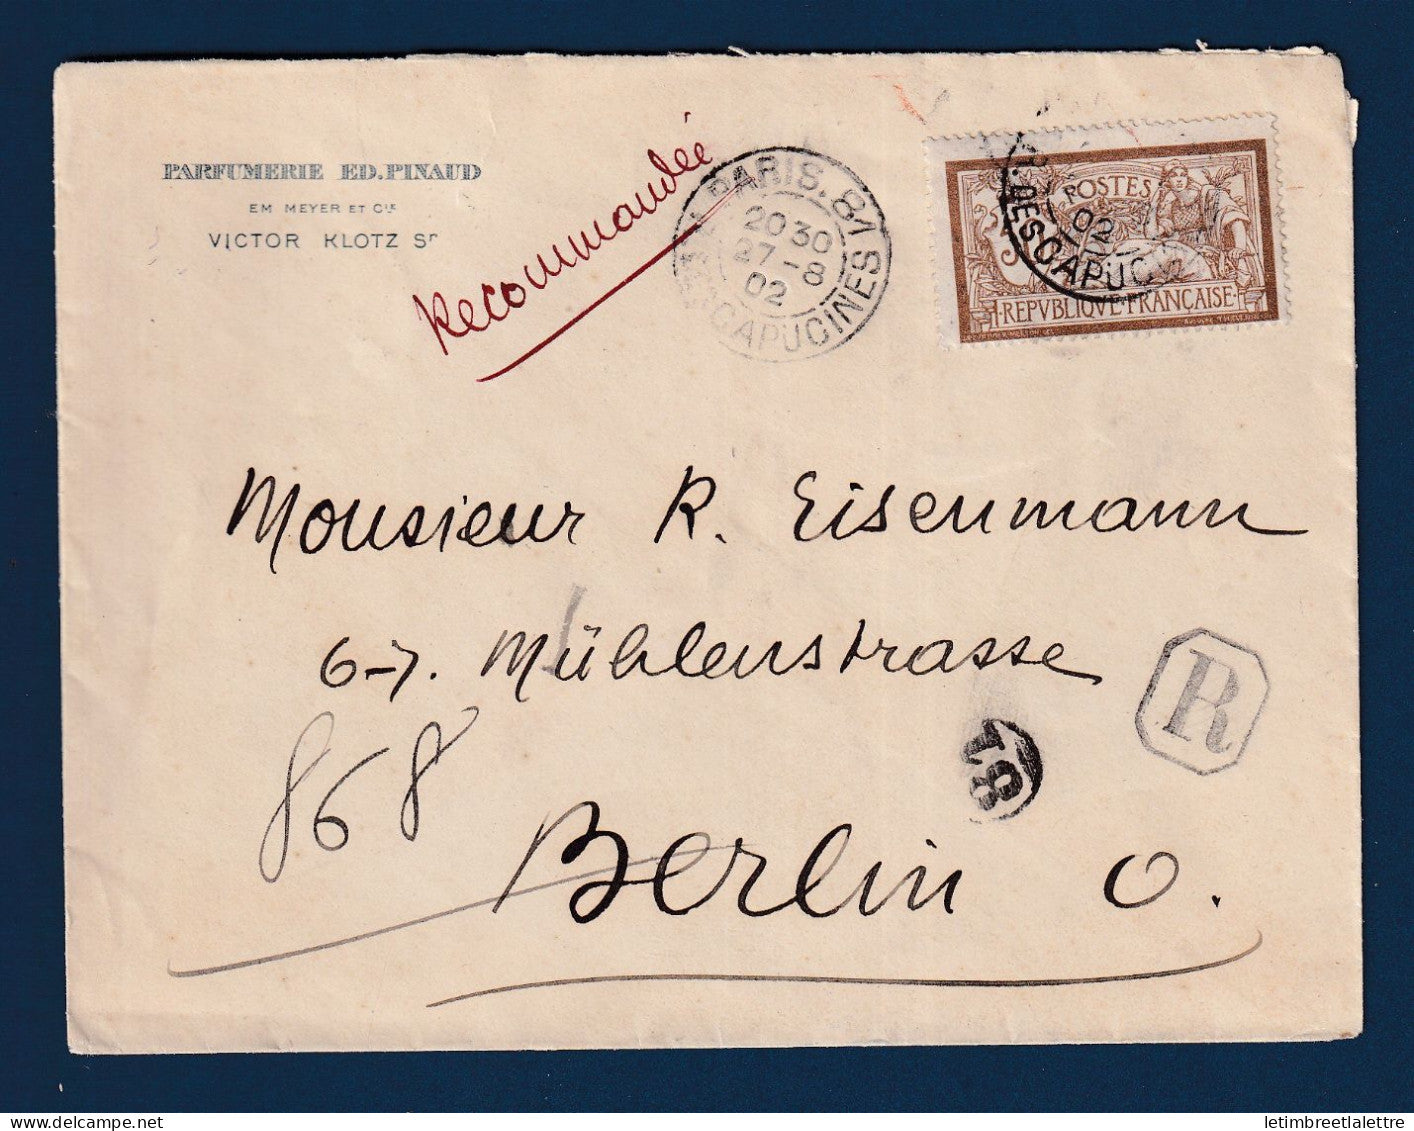 PARFUMERIE ED. PINAUD
EM MEYER ET Cie
VICTOR KLOTZ Sr
Recommandée
PARIS. 81
20 30
27 - 8
02
CAPUCINES
POSTES
02
DES CAPUC
REPVBLIQVE FRANÇAISE
Monsieur R. Eisenmann
6-7. Mühlenstrasse
R
868
81
Berlin O.
letimbreetlalettre